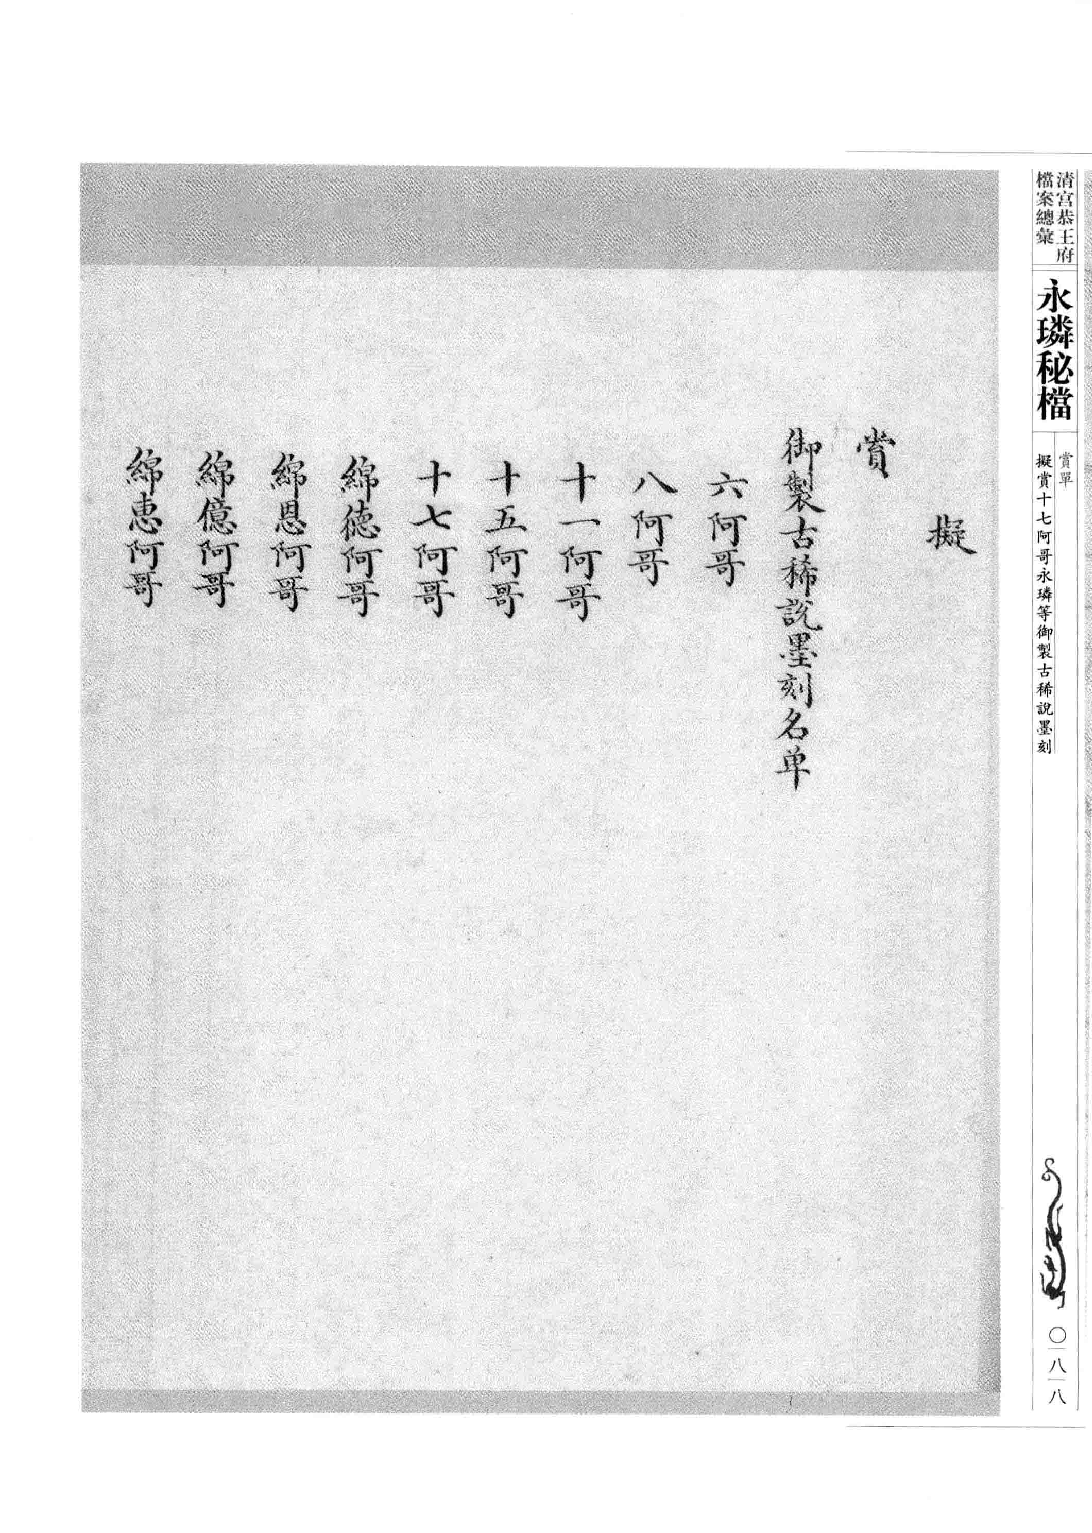 清宫恭王府
檔案總彙
永璘秘檔
賞單
擬賞十七阿哥永璘等御製古稀說墨刻
〇八八
擬
賞
御製古稀說墨刻名单
六阿哥
八阿哥
十一阿哥
十五阿哥
十七阿哥
綿德阿哥
綿恩阿哥
綿億阿哥
綿惠阿哥